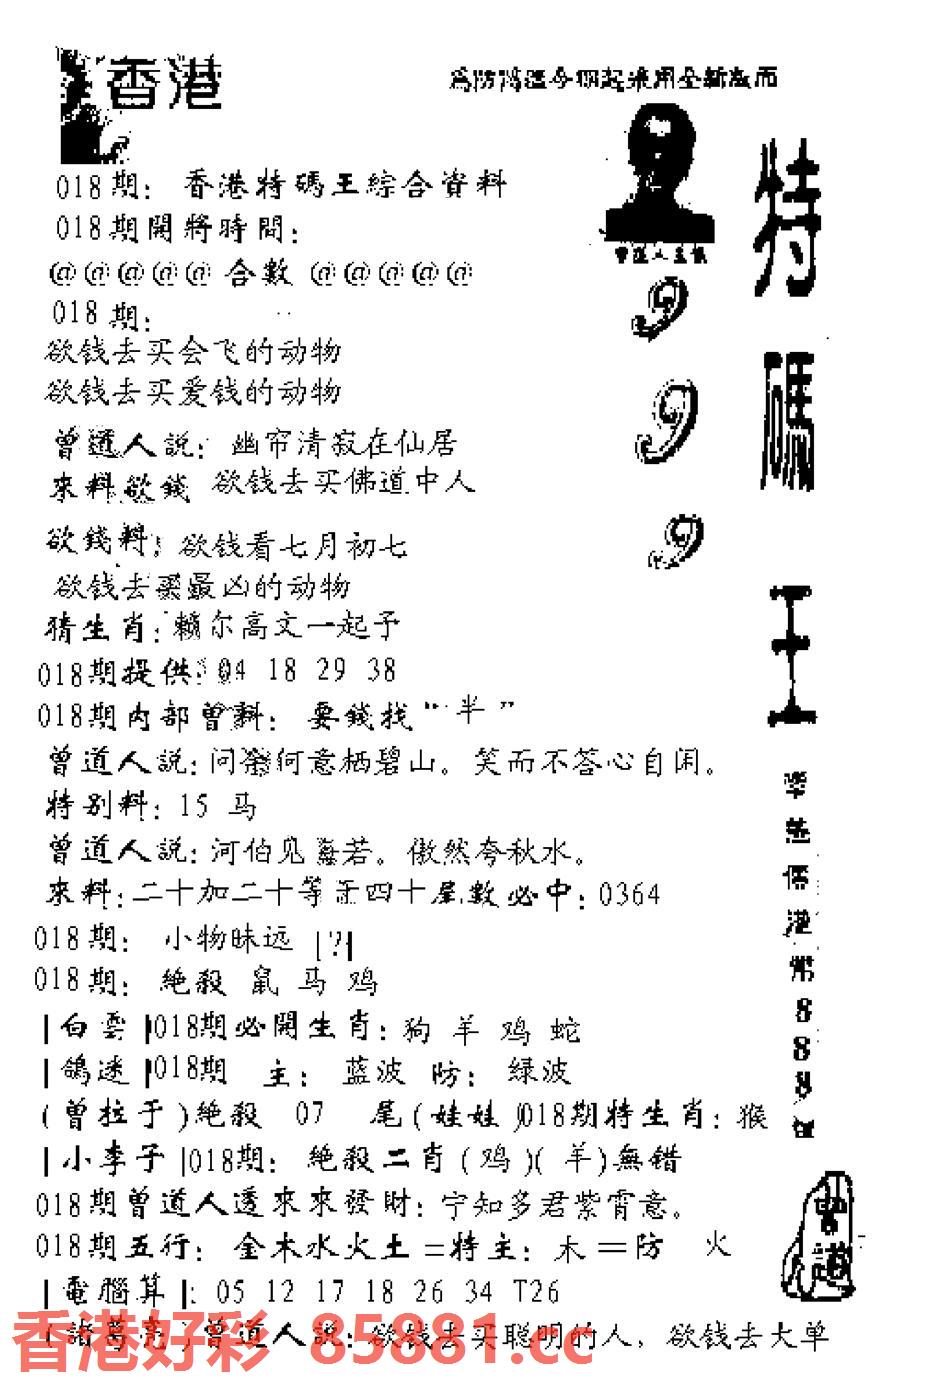 香港
018期：香港特碼王綜合資料
018期開將時間：
@@@@@合數@@@@@
018期：
欲钱去买会飞的动物
欲钱去买爱钱的动物
曾道人說：幽帘清寂在仙居
來料欲錢 欲钱去买佛道中人
欲錢料：欲钱看七月初七
欲钱去买最凶的动物
猜生肖：尔高文一起予
018期提供：04 18 29 38
018期內部曾料：要錢找“半”
曾道人說：问何意栖碧山。笑而不答心自闲。
特别料：15 马
曾道人說：河伯见海若。傲然夸秋水。
來料：二十加二十等四十尾數必中：0364
018期：小物昧远 [?]
018期：絶殺 鼠 马 鸡
|白雲|018期必開生肖：狗 羊 鸡 蛇
|鴿迷|018期 主：蓝波 防：绿波
(曾拉于)絶殺 07 尾(娃娃)018期特生肖：猴
|小李子|018期：絶殺二肖(鸡)(羊)無错
018期曾道人透來來發財：宁知多君紫霄意。
018期五行：金木水火土=特主：木=防 火
|電腦算|：05 12 17 18 26 34 T26
(諸葛亮)曾道人說：欲钱去买聪明的人，欲钱去大单
香港好彩 85881.cc
特碼王
999
曾道